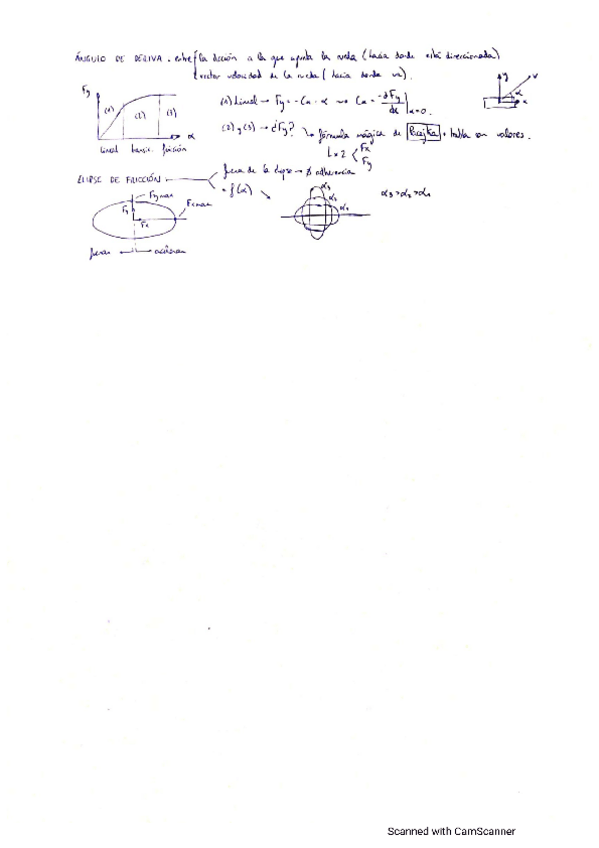 ÁNGULO DE DERIVA. entre la dirección a la que apunta la rueda (hacia donde está direccionada)
vector velocidad de la rueda (hacia donde va).
Fy
(1) (2) (3)
α
lineal transic. fricción
(1) Lineal → Fy = - Cα · α → Cα = -dFy/dα |α=0.
(2) y (3) → ¿Fy? → fórmula mágica de Pacejka + tabla con valores.
x2 Fx
Fy
y v
α
x
ELIPSE DE FRICCIÓN
fuera de la elipse → ∅ adherencia
f(α)
Fymax
Fxmax
Fy
Fx
frenar acelerar
α3
α2
α1
α3 > α2 > α1
Scanned with CamScanner